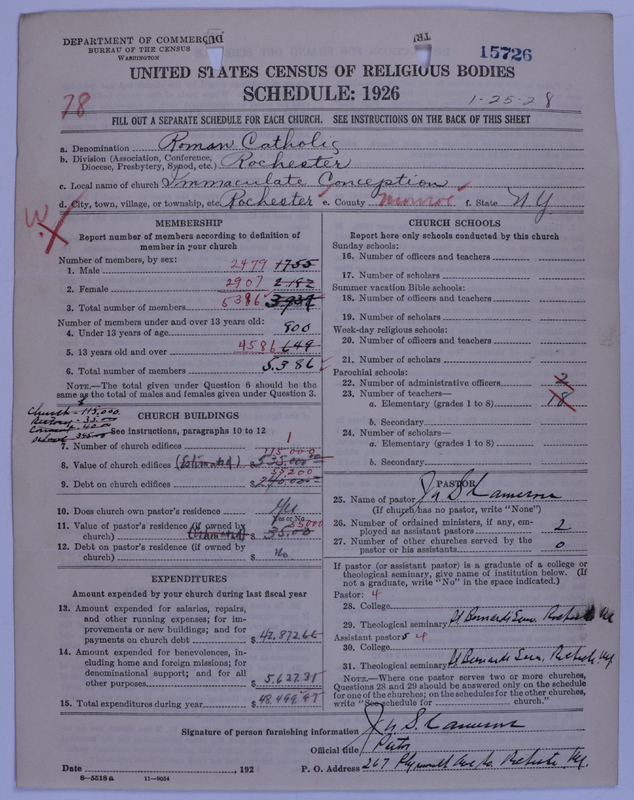 DEPARTMENT OF COMMERCE
BUREAU OF THE CENSUS
WASHINGTON
15726
UNITED STATES CENSUS OF RELIGIOUS BODIES
SCHEDULE: 1926
78
1-25-28
FILL OUT A SEPARATE SCHEDULE FOR EACH CHURCH. SEE INSTRUCTIONS ON THE BACK OF THIS SHEET
a. Denomination Roman Catholic
b. Division (Association, Conference, Diocese, Presbytery, Synod, etc.) Rochester
c. Local name of church Immaculate Conception
d. City, town, village, or township, etc. Rochester e. County Monroe f. State N.Y.
MEMBERSHIP
Report number of members according to definition of
member in your church
Number of members, by sex:
1. Male 2479 1755
2. Female 2907 2182
3. Total number of members 5386 3937
Number of members under and over 13 years old:
4. Under 13 years of age 800
5. 13 years old and over 4586 649
6. Total number of members 5.386
NOTE.—The total given under Question 6 should be the
same as the total of males and females given under Question 3.
Church - 115,000.
CHURCH BUILDINGS
See instructions, paragraphs 10 to 12
7. Number of church edifices 1
115,000
8. Value of church edifices (Estimated) $ 535,000.00
55,200
9. Debt on church edifices $ 240,000.00
10. Does church own pastor's residence Yes
Yes or No
11. Value of pastor's residence (if owned by
church) (Estimated) $ 35.00 35000
12. Debt on pastor's residence (if owned by
church) $ No
EXPENDITURES
Amount expended by your church during last fiscal year
13. Amount expended for salaries, repairs,
and other running expenses; for im-
provements or new buildings; and for
payments on church debt $ 42.872.66
14. Amount expended for benevolences, in-
cluding home and foreign missions; for
denominational support; and for all
other purposes $ 5,627.31
15. Total expenditures during year $ 48,499.97
CHURCH SCHOOLS
Report here only schools conducted by this church
Sunday schools:
16. Number of officers and teachers
17. Number of scholars
Summer vacation Bible schools:
18. Number of officers and teachers
19. Number of scholars
Week-day religious schools:
20. Number of officers and teachers
21. Number of scholars
Parochial schools:
22. Number of administrative officers 2
23. Number of teachers—
a. Elementary (grades 1 to 8) 18
b. Secondary
24. Number of scholars—
a. Elementary (grades 1 to 8)
b. Secondary
PASTOR
25. Name of pastor Jn S. Cameron
(If church has no pastor, write "None")
26. Number of ordained ministers, if any, em-
ployed as assistant pastors 2
27. Number of other churches served by the
pastor or his assistants 0
If pastor (or assistant pastor) is a graduate of a college or
theological seminary, give name of institution below. (If
not a graduate, write "No" in the space indicated.)
Pastor: 4
28. College
29. Theological seminary St Bernards Sem. Rochester NY
Assistant pastor: 4
30. College
31. Theological seminary St Bernards Sem. Rochester, NY.
NOTE.—Where one pastor serves two or more churches,
Questions 28 and 29 should be answered only on the schedule
for one of the churches; on the schedules for the other churches,
write "See schedule for church."
Signature of person furnishing information Jn S. Cameron
Official title Pastor
Date , 192 P. O. Address 267 Plymouth Ave So. Rochester NY.
8—5518a 11—9054